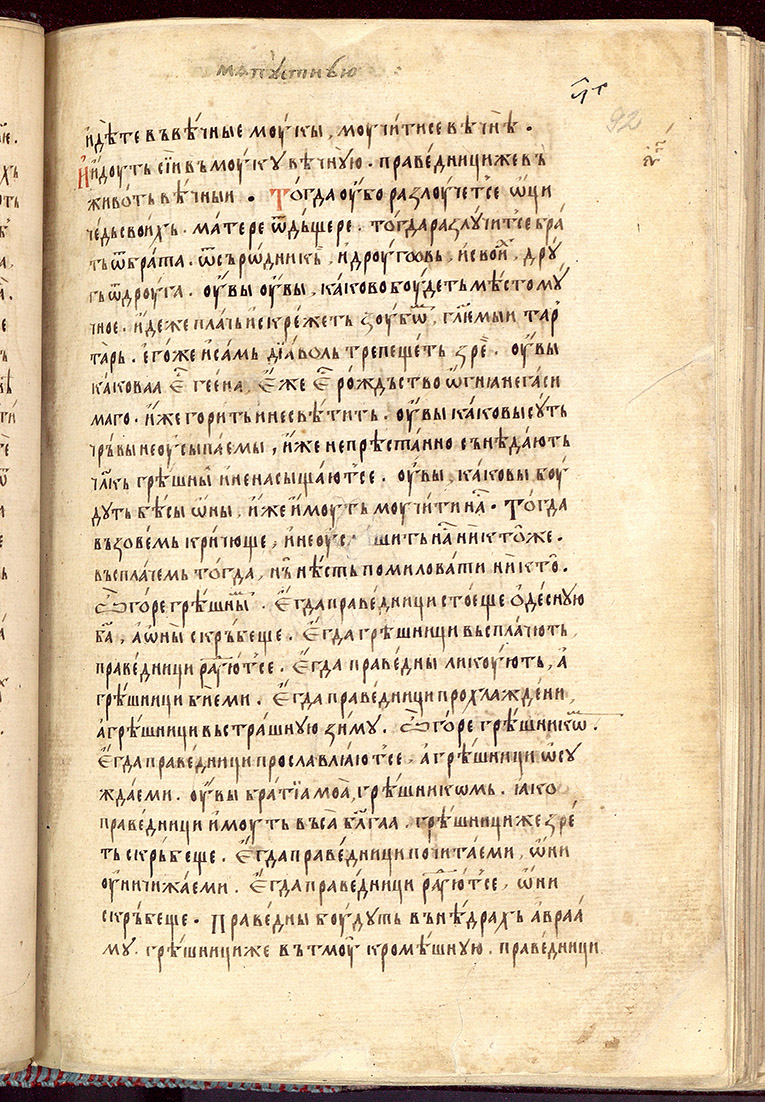 мапꙋстиню
92
и҆дѣ́те въвѣ́чные моу́кы, моучи́тисе вѣ́чнѣ.
И҆и҆доуть сїи въмоу́кꙋ вѣ́чнꙋю. праве́днициже въ
живо́ть вѣ́чныи. То́гда оу҆́бо разлоу́чет̾се ѡ҆ци
че́дь свои́хь. ма́тере ѿ дъ́щере. то́гда разлꙋ́чит̾се бра́
ть ѿ бра́та. ѿ съро́дникь, и҆ дроуговь, и҆ свои, дрꙋ
гь ѿ дроуга. оу҆вы оу҆вы, ка́ково боу́деть мѣ́сто мꙋ́
чное. и҆де́же пла́чь и҆ скре́жеть зоубѡ, гл҃емыи тар
та́рь. е҆го́же и҆ са́мь дїа́воль трепе́щеть зре. оу҆́вы
ка́коваа е геена, е҆́же е ро́ждъство ѻ҆гнꙗ нега́си
маго. и҆́же гори́ть и҆ несвѣ́тить. оу҆́вы ка́ковы сꙋ́ть
чръ́вы неоу҆сыпаемы, и҆́же непрѣста́нно сънѣ́дають
чл҃кь грѣ́шны и҆ ненасыща́ют̾се. оу҆́вы, ка́ковы боу́
дꙋть бѣ́сы ѡ҆́ны, и҆́же и҆́моуть моучи́ти на. То́гда
възове́мь кри́чюще, и҆ неоу҆с шить на ни́кто́же.
въспла́чемь то́гда, нѣ́сть помилова́ти ни́кто.
Ѽ го́ре грѣ́шны. Е҆гда́ праве́дници стое́ще ѻ҆десную
ба, а҆ ѡ҆ны скръ́беще. Е҆гда́ грѣ́шници въспла́чють,
праве́дници раꙋ́ют̾се. Е҆гда́ праве́дны ликоу́ють, а҆
грѣ́шници бїе́ми. Е҆гда́ праве́дници прохлажде́ни,
а҆ грѣ́шници въ стра́шнꙋю зи́мꙋ. Ѽ го́ре грѣ́шникѡ.
Е҆гда́ праве́дници прославлꙗ́ют̾се, а҆ грѣ́шници ѡ҆сꙋ
жда́еми. оу҆́вы бра́тїа моа̀, грѣ́шникѡмь. ꙗ҆ко
праве́дници и҆́моуть въса бл҃гаа. грѣ́шници же зре́
ть скръ́беще. Е҆гда́ праве́дници почита́еми, ѡ҆ни
оу҆ничижа́еми. Е҆гда́ праве́дници раꙋ́ют̾се, ѡ҆ни
скръ́беще. Праве́дны боу́дꙋть вънѣ́драхь авраа́
мꙋ. грѣ́шници же вътмоу̀ кромѣ́шнꙋю. праве́дници